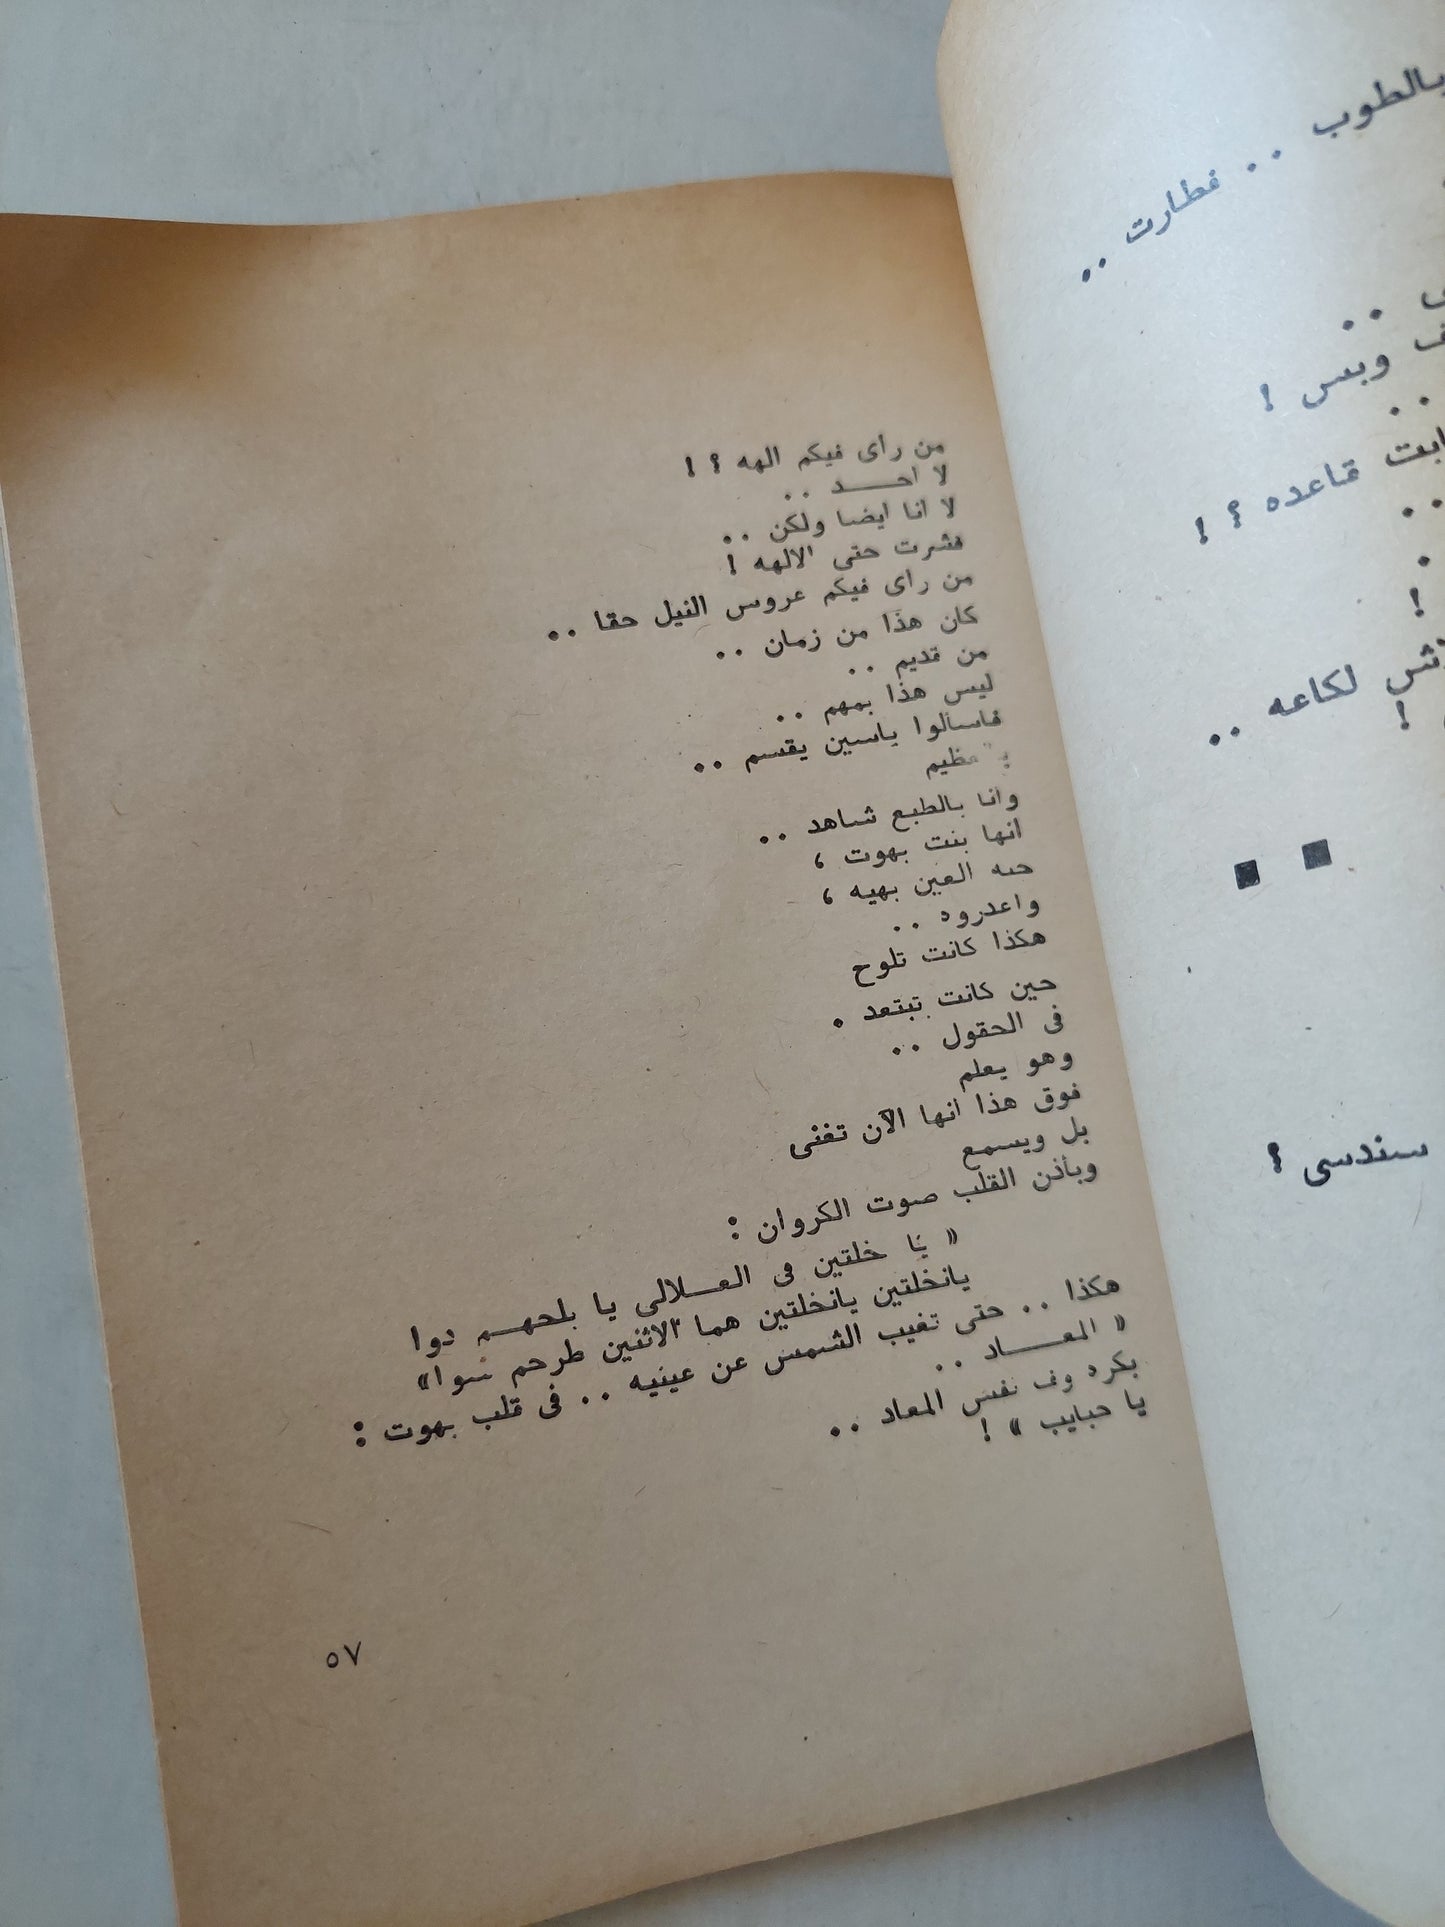 من رأى فيكم الهه ؟ !
لا احـــد ..
لا انا ايضا ولكن ..
فشرت حتى الالهه !
من رأى فيكم عروس النيل حقا ..
كان هذا من زمان ..
من قديم ..
ليس هذا بمهم ..
فاسألوا ياسين يقسم ..
وانا بالطبع شاهد ..
انها بنت بهوت ،
حبه العين بهيه ،
واعذروه ..
هكذا كانت تلوح
حين كانت تبتعد .
فى الحقول ..
وهو يعلم
فوق هذا انها الآن تغنى
بل ويسمع
وبأذن القلب صوت الكروان :
« يا خلتين فى العـلالى يا بلحهـم دوا
يانخلتين يانخلتين هما الاثنين طرحم سوا»
هكذا .. حتى تغيب الشمس عن عينيه .. فى قلب بهوت :
« المعـــاد ..
بكره وف نفس المعاد ..
يا حبايب » !
٥٧
بالطوب .. فطارت ..
وبس !
قاعده ؟ !
لكاعه ..
!
سندسى ؟